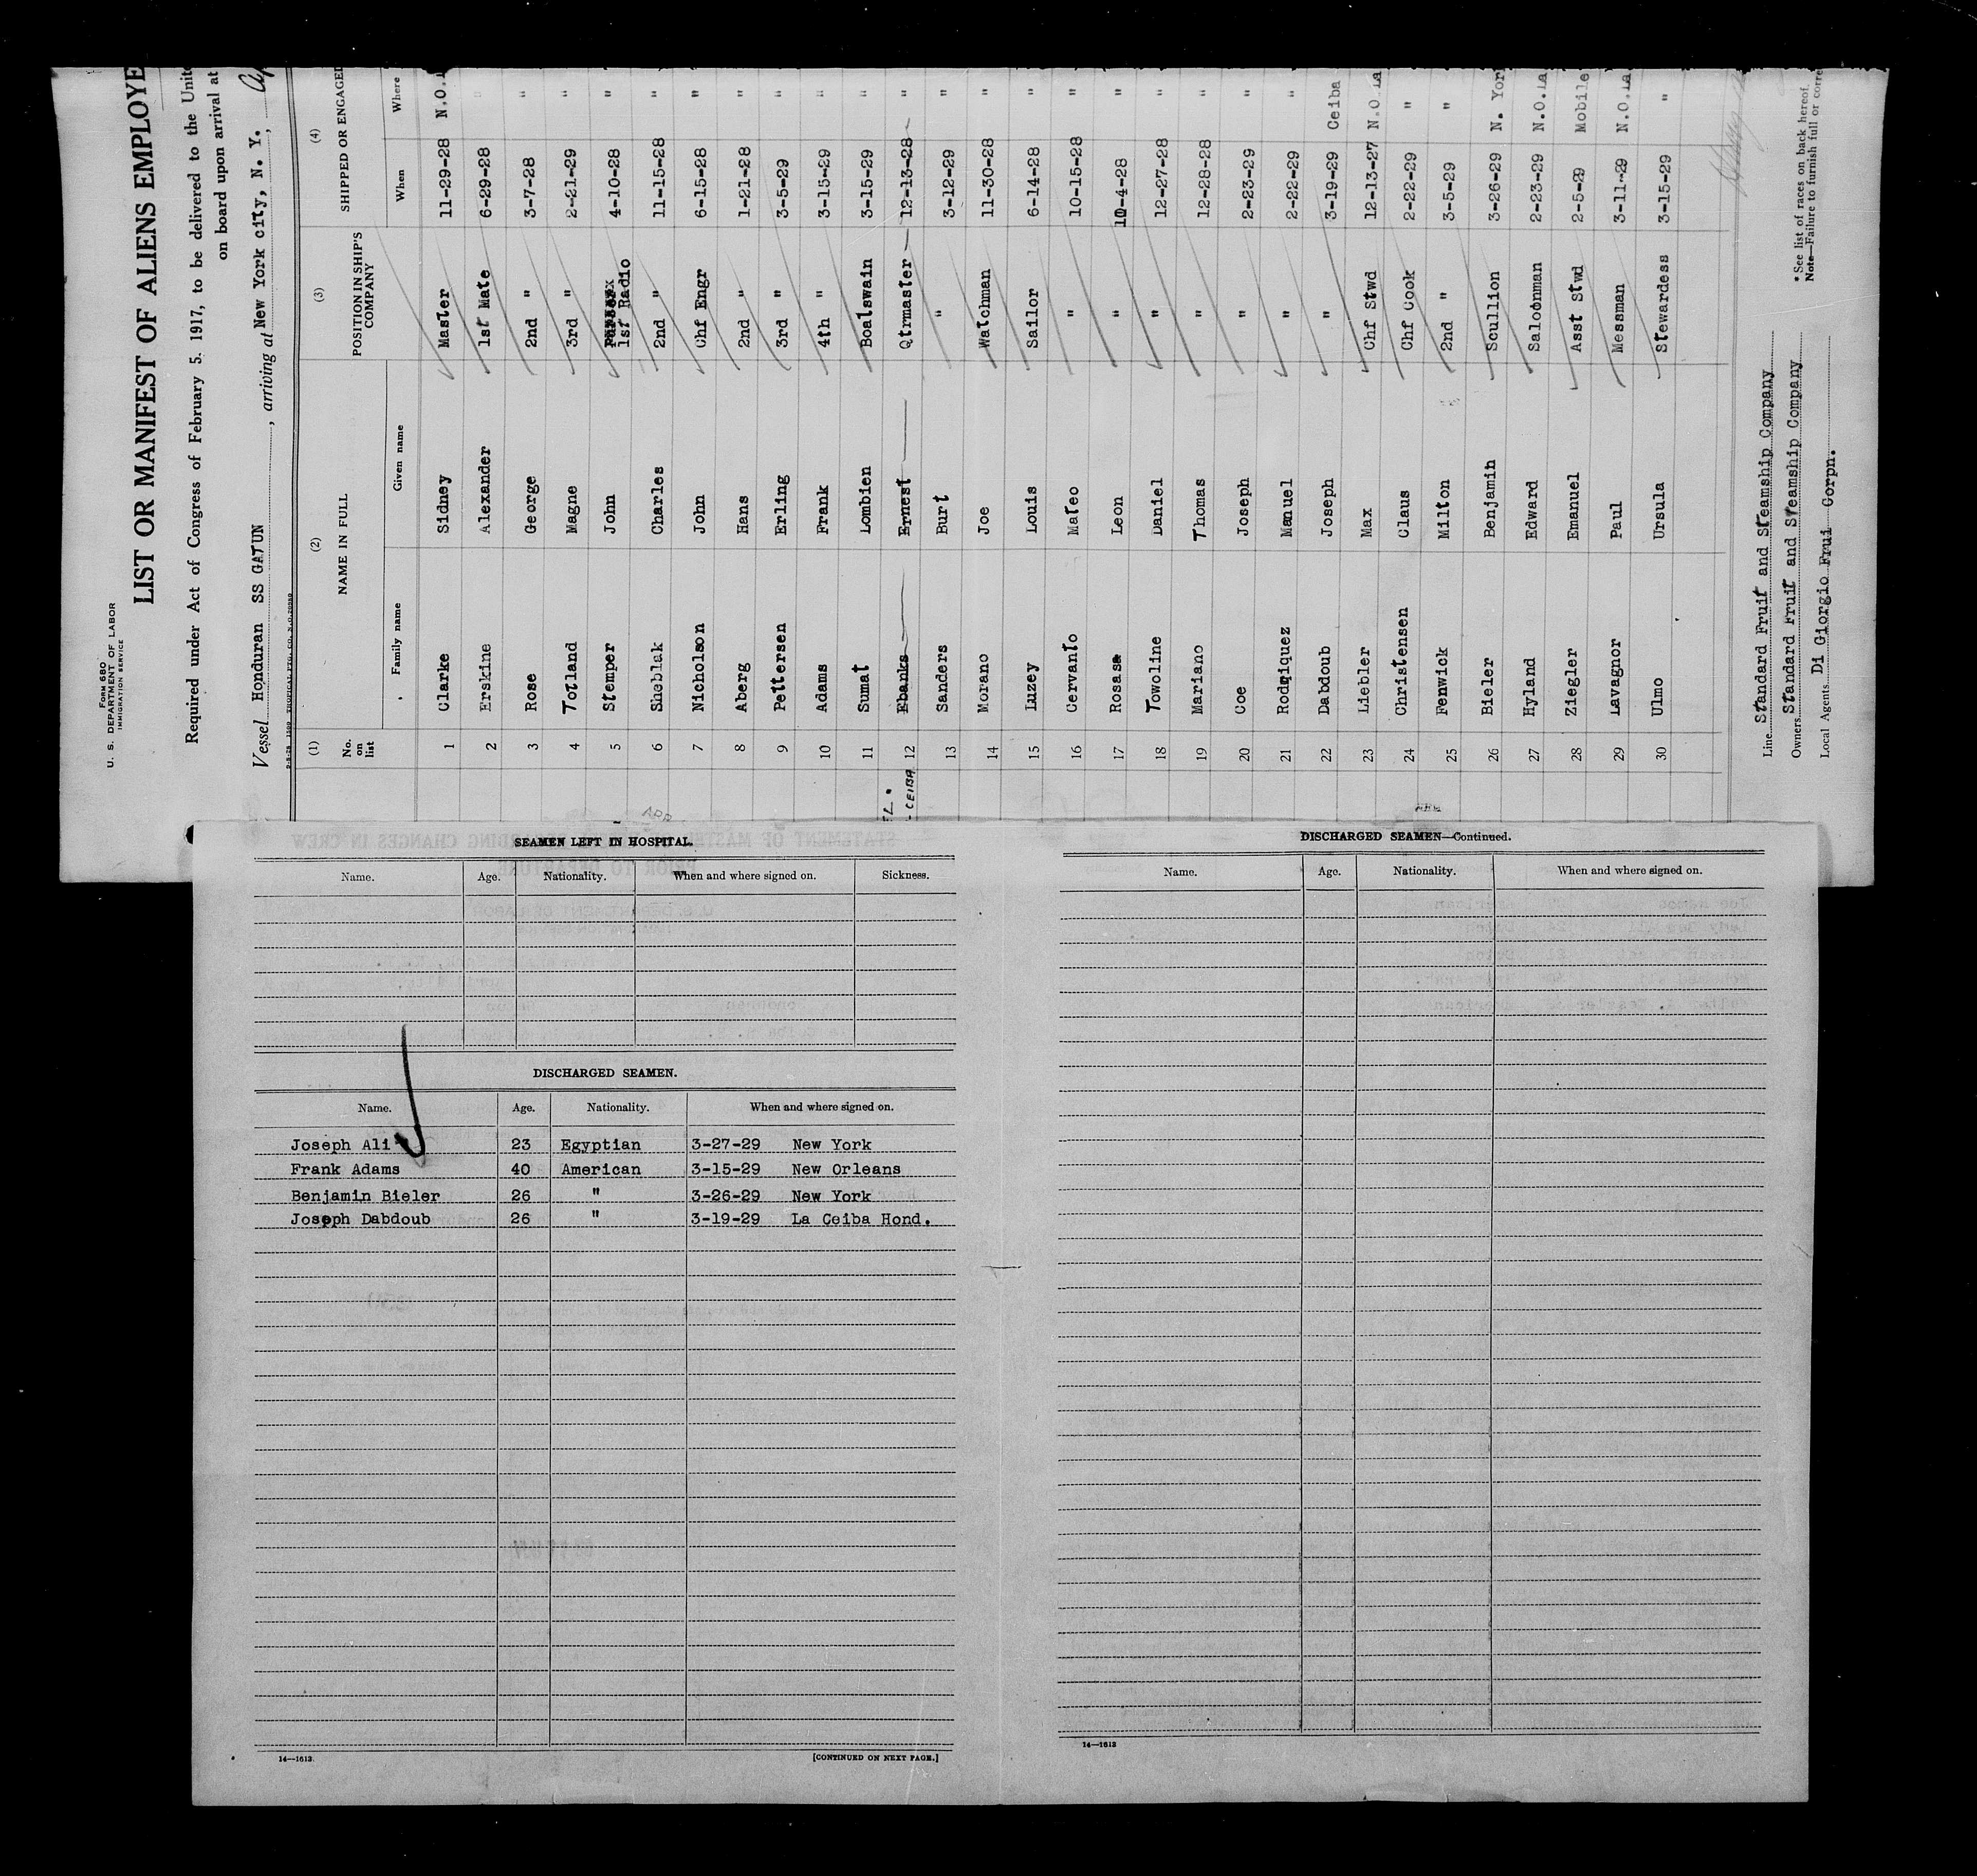 FORM 680
U. S. DEPARTMENT OF LABOR
IMMIGRATION SERVICE
LIST OR MANIFEST OF ALIENS EMPLOYE
Required under Act of Congress of February 5, 1917, to be delivered to the Unite
on board upon arrival at
Vessel Honduran SS GATUN, arriving at New York city, N. Y.,
(1) (2) (3) (4)
No. on list NAME IN FULL POSITION IN SHIP'S COMPANY SHIPPED OR ENGAGED
Family name Given name When Where
1 Clarke Sidney Master 11-29-28 N.O.
2 Erskine Alexander 1st Mate 6-29-28 "
3 Rose George 2nd " 3-7-28 "
4 Totland Magne 3rd " 2-21-29 "
5 Stemper John 1st Radio 4-10-28 "
6 Sheblak Charles 2nd " 11-15-28 "
7 Nicholson John Chf Engr 6-15-28 "
8 Aberg Hans 2nd " 1-21-28 "
9 Pettersen Erling 3rd " 3-5-29 "
10 Adams Frank 4th " 3-15-29 "
11 Sumat Lombien Boatswain 3-15-29 "
12 Ebanks Ernest Qtrmaster 12-13-28 "
CEIBA
13 Sanders Burt " 3-12-29 "
14 Morano Joe Watchman 11-30-28 "
15 Luzey Louis Sailor 6-14-28 "
16 Cervanto Mateo " 10-15-28 "
17 Rosasa Leon " 10-4-28 "
18 Towoline Daniel " 12-27-28 "
19 Mariano Thomas " 12-28-28 "
20 Coe Joseph " 2-23-29 "
21 Rodqiquez Manuel " 2-22-29 "
22 Dabdoub Joseph " 3-19-29 Ceiba
23 Liebler Max Chf Stwd 12-13-27 N.O.La
24 Christensen Claus Chf Cook 2-22-29 "
25 Fenwick Milton 2nd " 3-5-29 "
26 Bieler Benjamin Scullion 3-26-29 N. Yor
27 Hyland Edward Saloonman 2-23-29 N.O.La
28 Ziegler Emanuel Asst Stwd 2-5-29 Mobile
29 Lavagnor Paul Messman 3-11-29 N.O.La
30 Ulmo Ursula Stewardess 3-15-29 "
Line Standard Fruit and Steamship Company
Owners Standard Fruit and Steamship Company
Local Agents Di Giorgio Frui Corpn.
* See list of races on back hereof.
Note—Failure to furnish full or corre
SEAMEN LEFT IN HOSPITAL.
Name. Age. Nationality. When and where signed on. Sickness.
DISCHARGED SEAMEN.
Name. Age. Nationality. When and where signed on.
Joseph Ali 23 Egyptian 3-27-29 New York
Frank Adams 40 American 3-15-29 New Orleans
Benjamin Bieler 26 " 3-26-29 New York
Joseph Dabdoub 26 " 3-19-29 La Ceiba Hond.
14—1613
[CONTINUED ON NEXT PAGE.]
DISCHARGED SEAMEN—Continued.
Name. Age. Nationality. When and where signed on.
14—1613